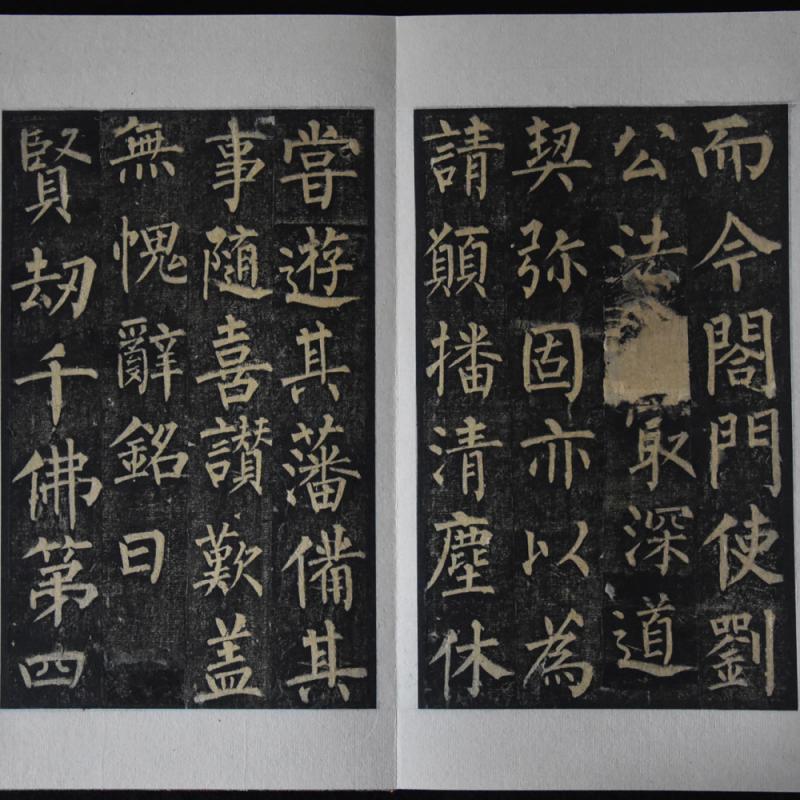 而今閤門使劉
公法取深道
契弥固亦以為
請願播清塵休
嘗遊其藩備其
事隨喜讃歎盖
無愧辭銘曰
賢劫千佛第四